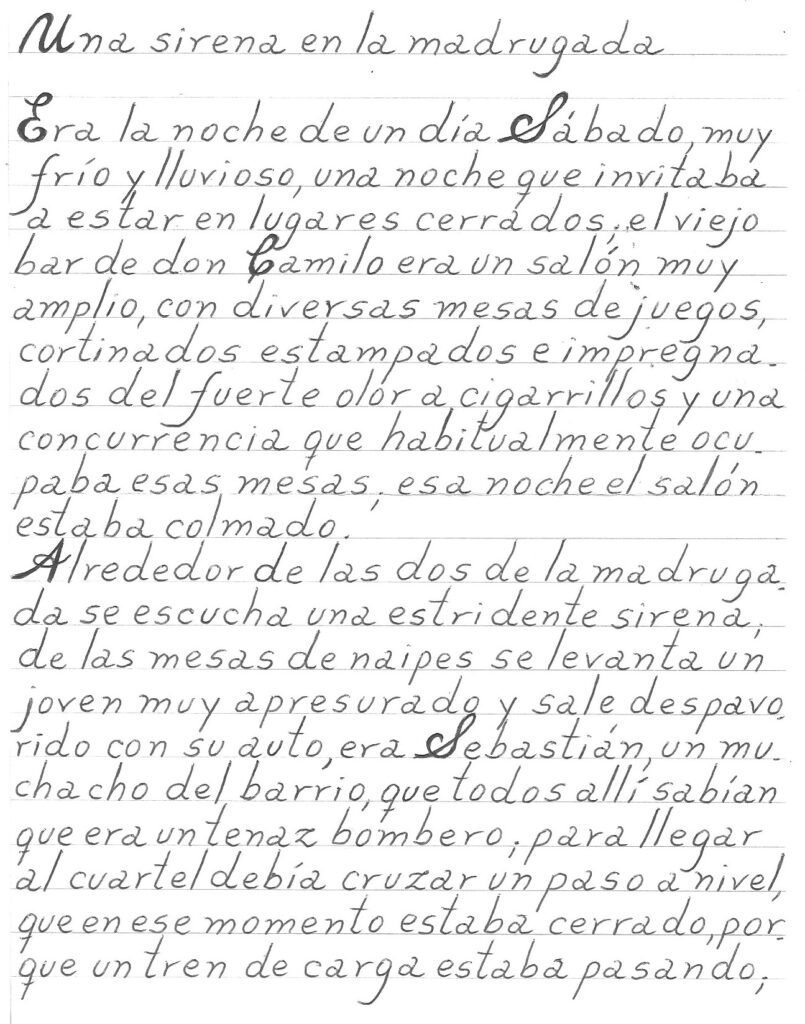 Una sirena en la madrugada
Era la noche de un día Sábado, muy
frío y lluvioso, una noche que invitaba
a estar en lugares cerrados; el viejo
bar de don Camilo era un salón muy
amplio, con diversas mesas de juegos,
cortinados estampados e impregna-
dos del fuerte olor a cigarrillos y una
concurrencia que habitualmente ocu-
paba esas mesas; esa noche el salón
estaba colmado.
Alrededor de las dos de la madruga-
da se escucha una estridente sirena;
de las mesas de naipes se levanta un
joven muy apresurado y sale despavo-
rido con su auto, era Sebastián, un mu-
chacho del barrio, que todos allí sabían
que era un tenaz bombero; para llegar
al cuartel debía cruzar un paso a nivel,
que en ese momento estaba cerrado, por-
que un tren de carga estaba pasando;